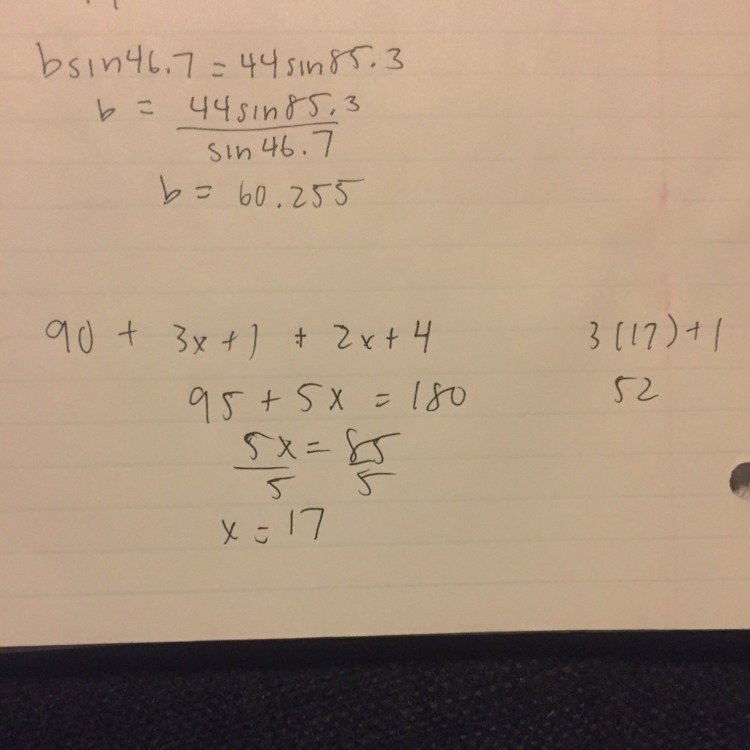 bsin46.7 = 44sin85.3
b = 44sin85.3
sin46.7
b = 60.255
90 + 3x+1 + 2x+4
95 + 5x = 180
5x = 85
5 5
x = 17
3(17)+1
52